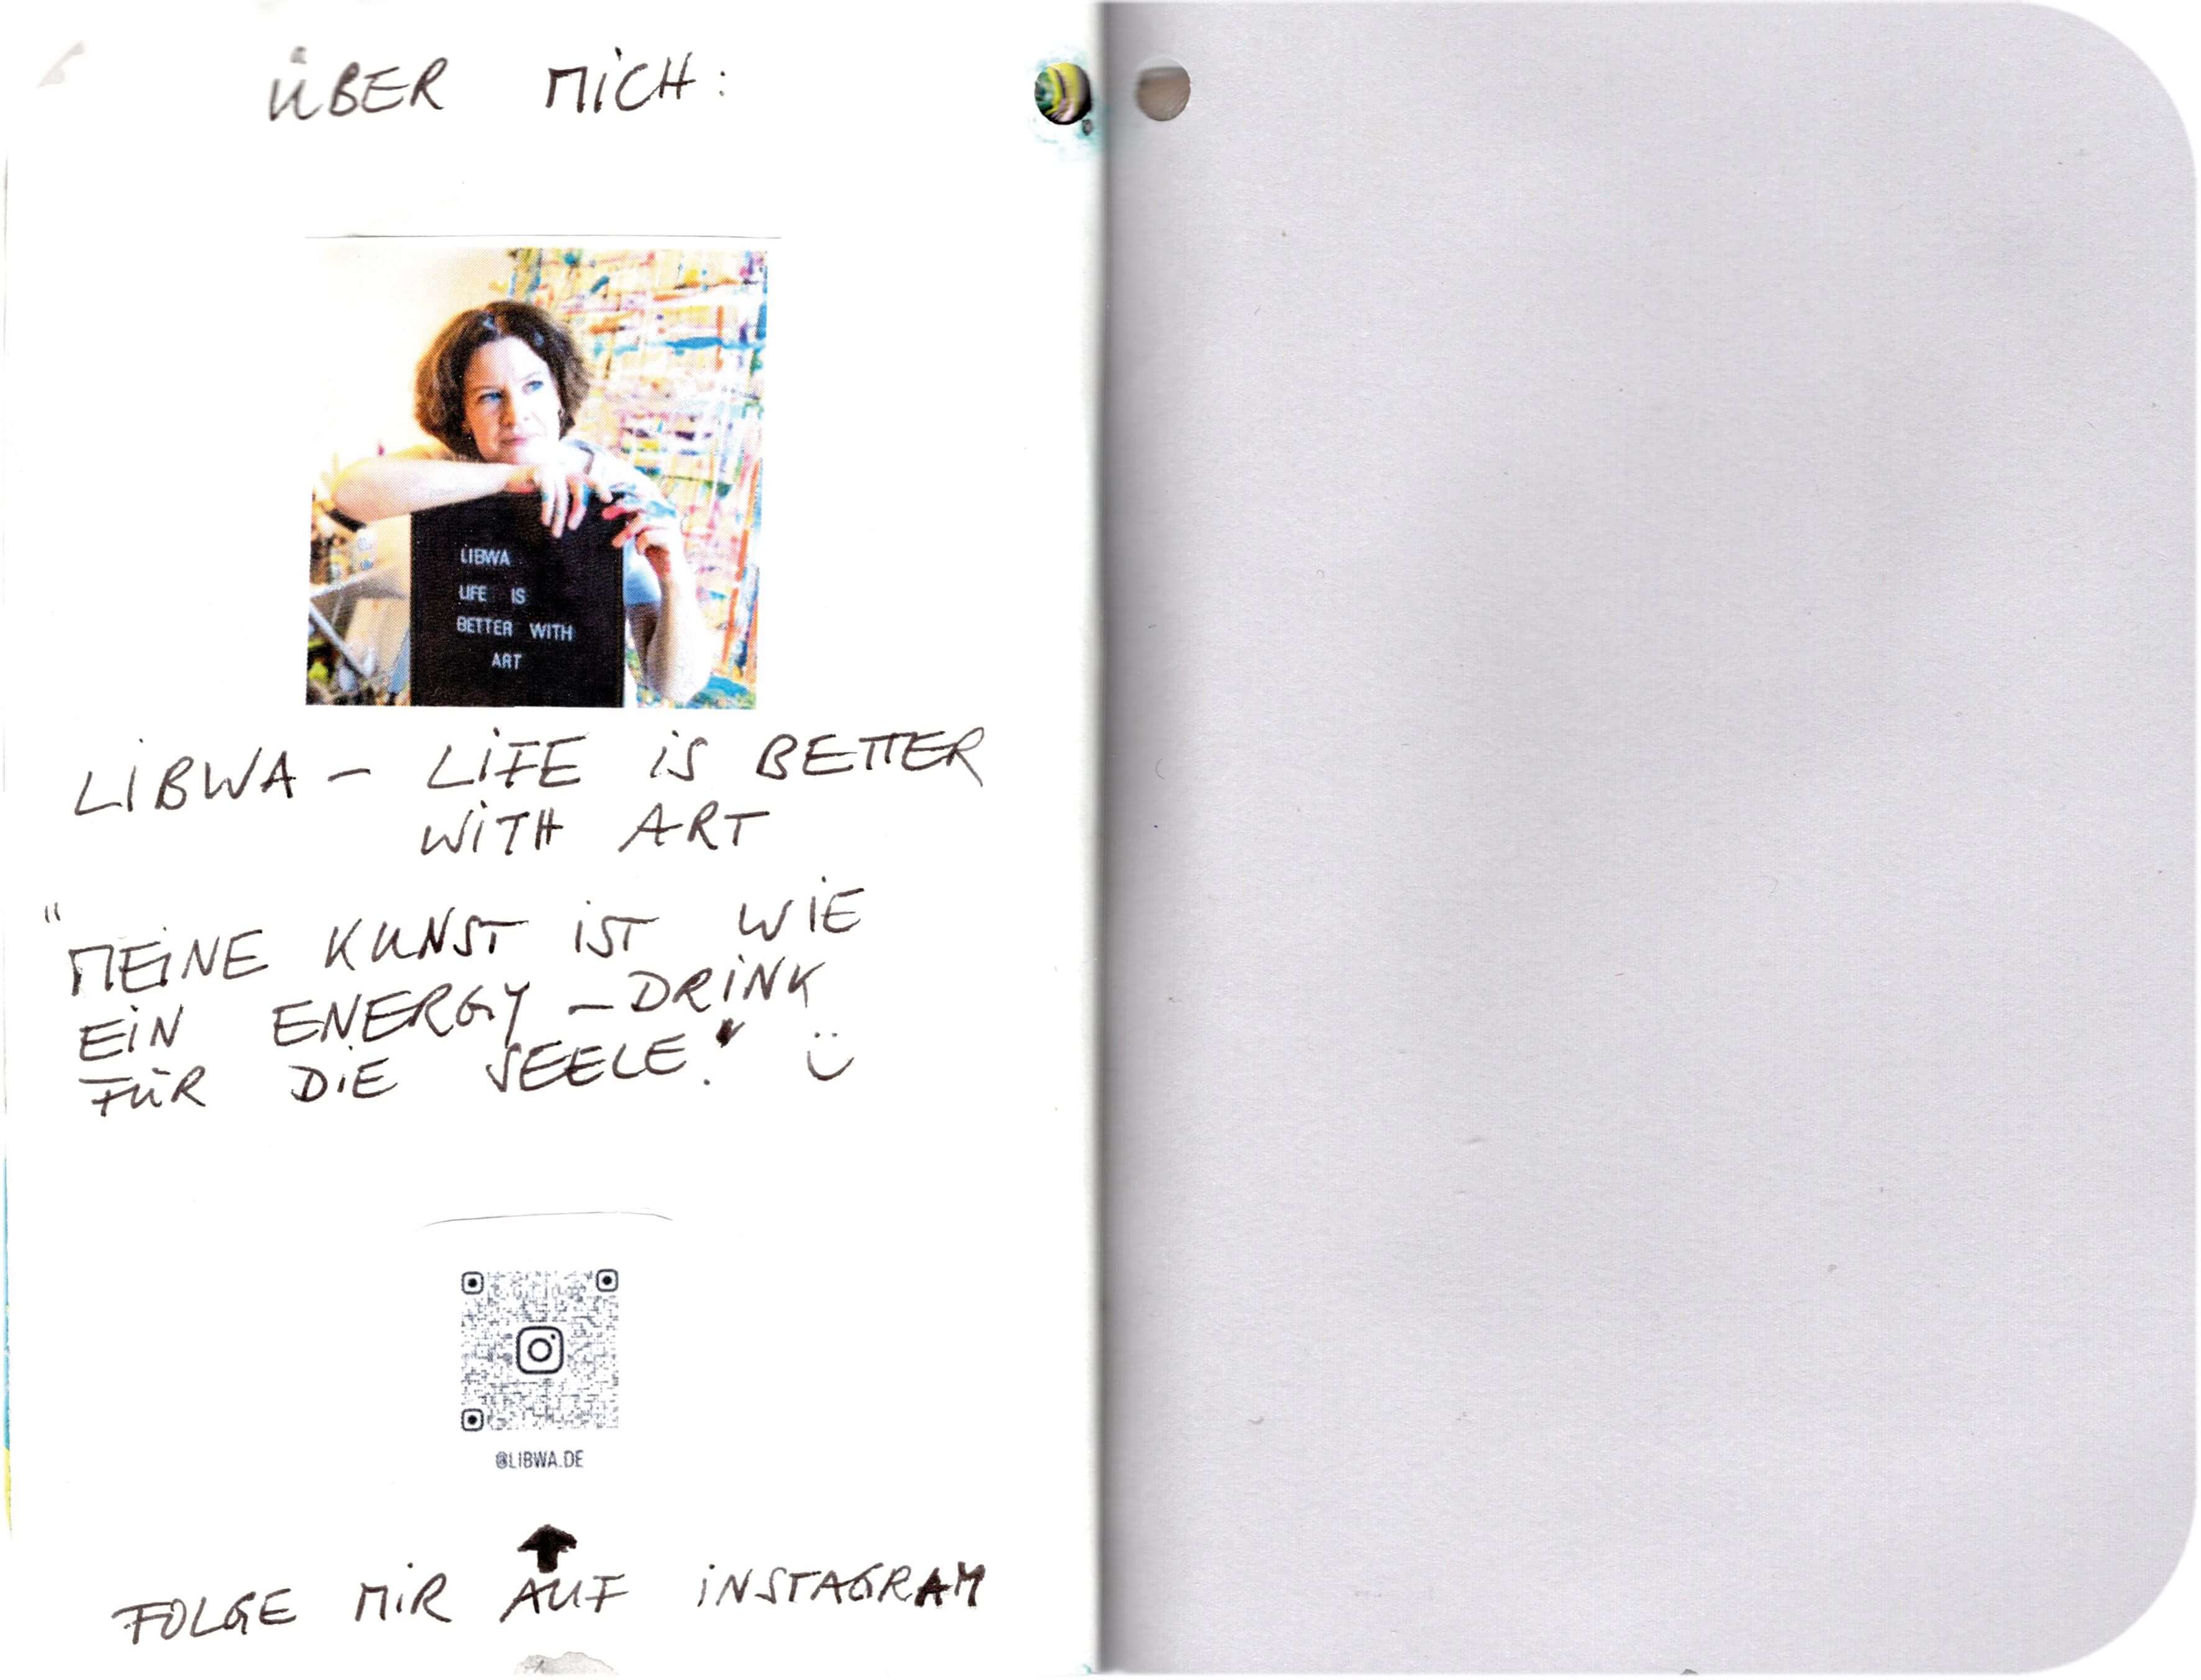 ÜBER MICH:
LIBWA
LIFE IS
BETTER WITH
ART
LIBWA – LIFE IS BETTER
WITH ART
"MEINE KUNST IST WIE
EIN ENERGY-DRINK
FÜR DIE SEELE."
@LIBWA.DE
FOLGE MIR AUF INSTAGRAM